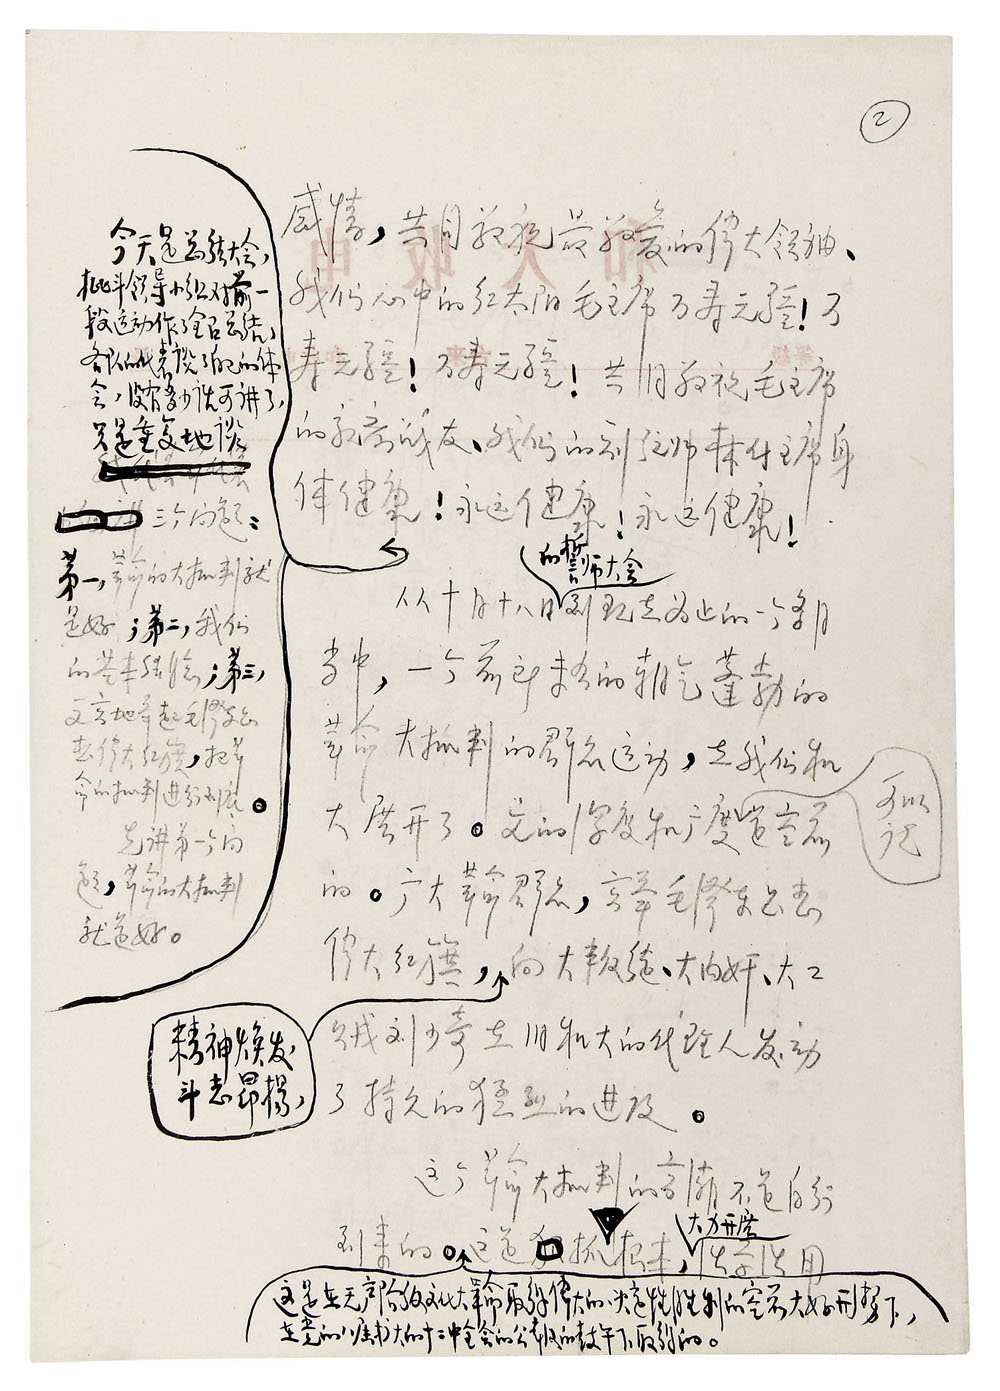 2
感情，共同敬祝最敬爱的伟大领袖、
我们心中的红太阳毛主席万寿无疆！万
寿无疆！万寿无疆！共同敬祝毛主席
的亲密战友、我们的副统帅林付主席身
体健康！永远健康！永远健康！
的誓师大会
从十月十八日到现在为止的一个多月
当中，一个前所未有的朝气蓬勃的
革命大批判的群众运动，在我们机
大展开了。它的深度和广度是空前
的。广大革命群众，高举毛泽东思想
伟大红旗，向大叛徒、大内奸、大工
贼刘少奇在旧机大的代理人发动
了持久的猛烈的进攻。
这个革命大批判的高潮不是自行
到来的。这是抓根本，活学活用
大力开展
今天是总结大会，
批斗领导小组对前一
段运动作了全面总结，
各队的代表谈了自己的体
会，没有多少话可讲了，
只是重复地谈
三个问题：
第一，革命的大批判就
是好；第二，我们
的基本经验；第三，
更高地举起毛泽东思
想伟大红旗，把革
命的批判进行到底。
先讲第一个问
题，革命的大批判
就是好。
可以
说
精神焕发
斗志昂扬，
这是在无产阶级文化大革命取得伟大的决定性胜利的空前大好形势下，
在党的八届扩大的十二中全会的公报的鼓舞下取得的。